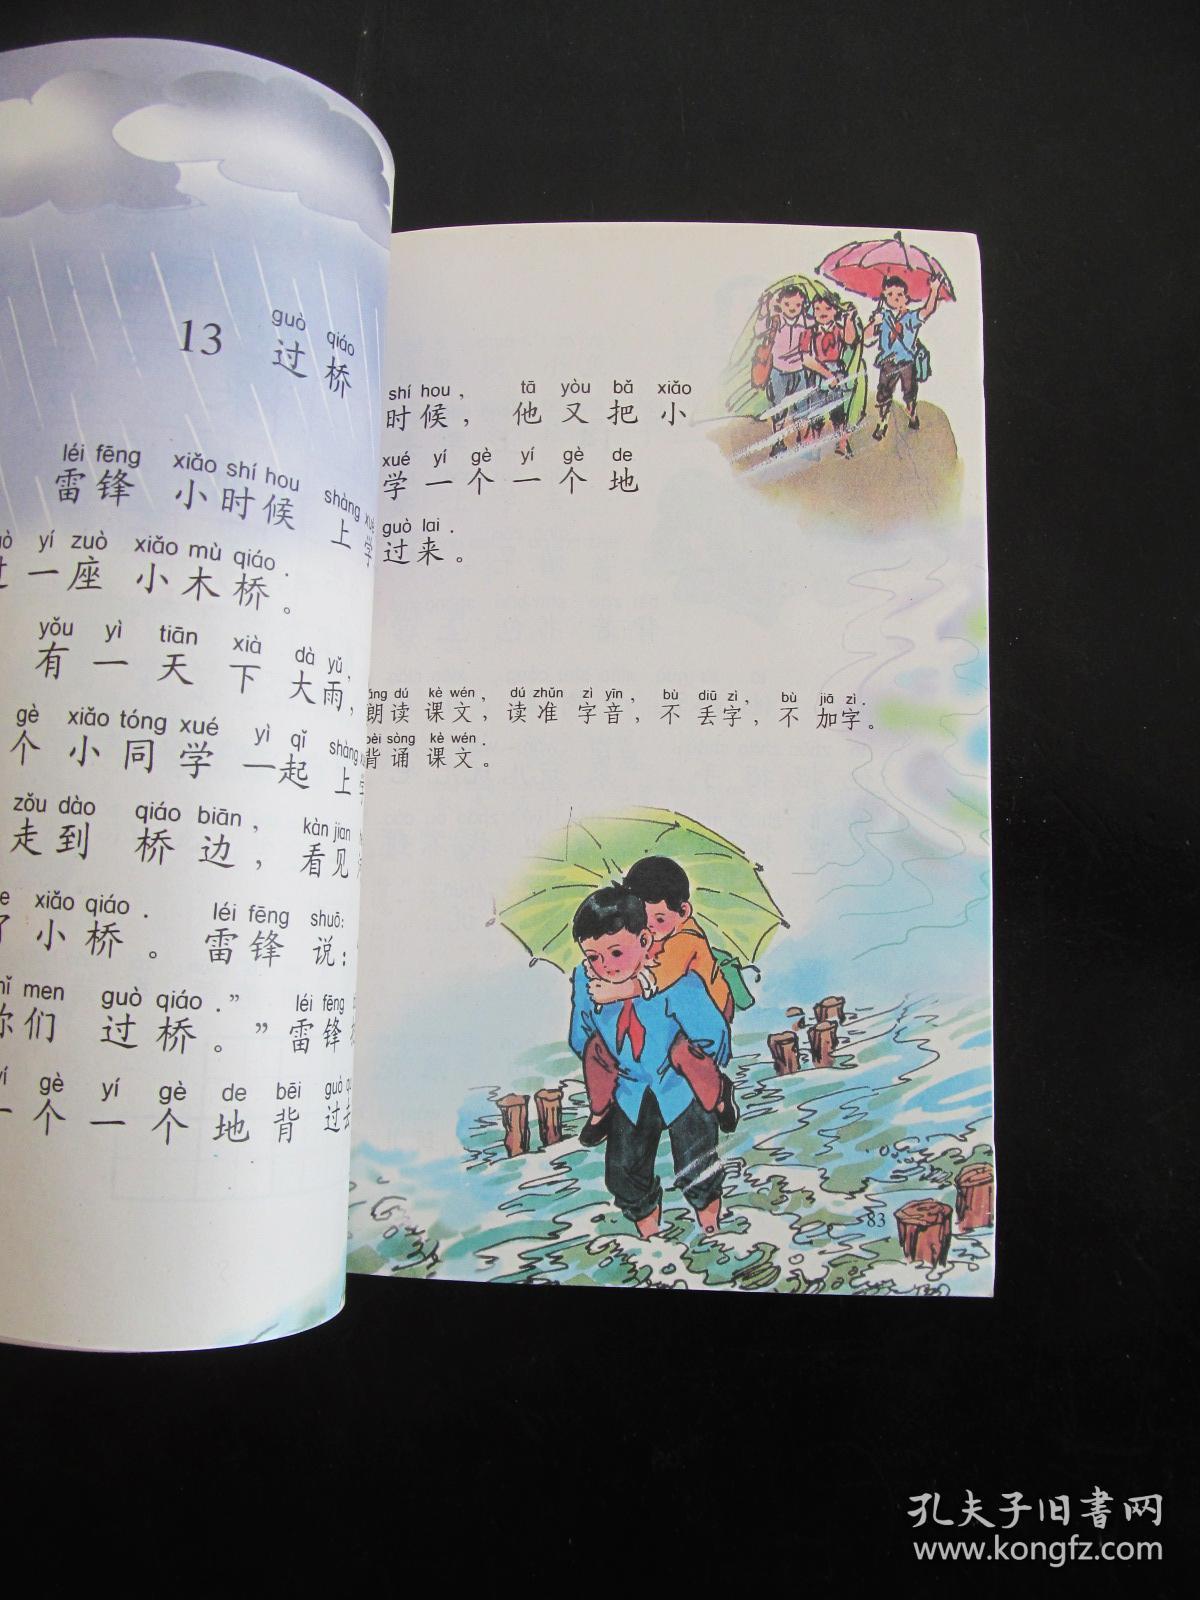 13 guò qiáo
过桥
léi fēng xiǎo shí hou shàng xué
雷锋 小时候 上学
yí zuò xiǎo mù qiáo.
一座 小木桥。
yǒu yì tiān xià dà yǔ,
有一天下大雨，
gè xiǎo tóng xué yì qǐ shàng
个小同学一起上
zǒu dào qiáo biān, kàn jian
走到桥边，看见
xiǎo qiáo. léi fēng shuō:
了小桥。雷锋说：
men guò qiáo.” léi fēng
你们过桥。”雷锋
gè yí gè de bēi guò
一个一个地背过去
shí hou, tā yòu bǎ xiǎo
时候，他又把小
xué yí gè yí gè de
学一个一个地
guò lai.
过来。
dú kè wén, dú zhǔn zì yīn, bù diū zì, bù jiā zì.
朗读课文，读准字音，不丢字，不加字。
bèi sòng kè wén.
背诵课文。
83
孔夫子旧书网
www.kongfz.com